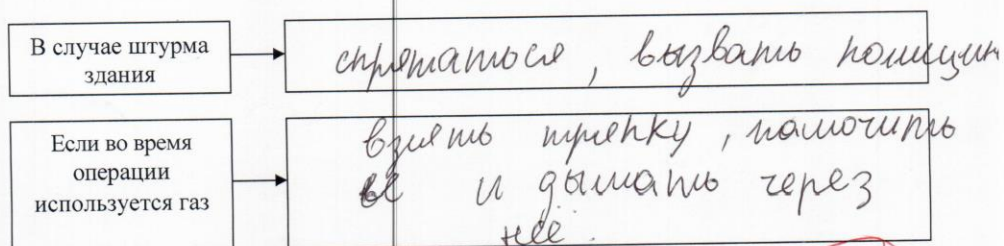 В случае штурма
здания
спрятаться, вызвать полицию
Если во время
операции
используется газ
взять тряпку, намочить
её и дышать через
неё.